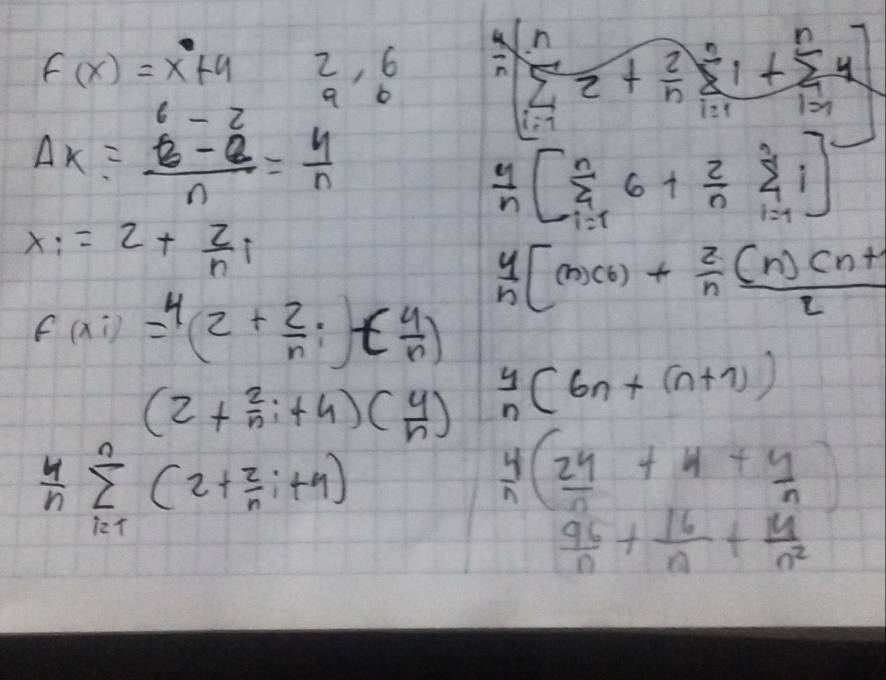 f(x) = x+4    2 , 6
a  b
6 - 2
Δx = (6 - 2)/n = 4/n
xi = 2 + 2/n i
f(xi) = 4(2 + 2/n i)+(4/n)
(2 + 2/n i + 4)(4/n)
4/n Σ i=1 n (2 + 2/n i + 4)
4/n [Σ i=1 n 2 + 2/n Σ i=1 n i + Σ i=1 n 4]
4/n [Σ i=1 n 6 + 2/n Σ i=1 n i]
4/n [(n)(6) + 2/n (n)(n+1/2
4/n (6n + (n+1))
4/n (24/n + 4 + 4/n)
96/n + 16/n + 14/n²